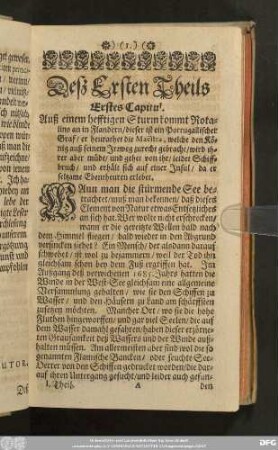 (1.)
Deß Ersten Theils
Erstes Capitul.
Auß einem hefftigen Sturm kommt
an in Flandern/ dieser ist ein Portugallischer
Graf/ er heurathet die welche den Kö-
nig auß seinem Irweg zurecht gebracht/ wird
aber müde/ und gehet von ihr/ leidet Schiff-
bruch/ und erhält sich auf einer Insul/ da er
seltzame Ebentheuren erlebet.
Wann man die stürmende See be-
trachtet/ muß man bekennen/ daß dieses
Element von Natur etwas Entsetzliches
an sich hat. Wer wolte nicht erschrecken/
wann er die gereitzte Wellen bald nach
dem Himmel steigen/ bald wieder in den Abgrund
versincken siehet? Ein Mensch/ der alsdann darauf
schwebet/ ist wol zu bejammern/ weil der Tod ihn
gleichsam schon bey dem Fuß ergriffen hat. Im
Außgang deß verwichenen 1685. Jahrs hatten die
Winde in der West-See gleichsam eine allgemeine
Versammlung gehalten/ wie sie den Schiffen zu
Wasser/ und den Häusern zu Land am schärffsten
zusetzen möchten. Mancher Ort/ wo sie die hohe
Fluthen hingeworffen/ und gar viel Seelen/ die auf
dem Wasser damahl gefahren/ haben dieser erzörne-
ten Grausamkeit deß Wassers und der Winde auß-
halten müssen. Am allermeisten aber sind viel die so
genannten Flamische Bancken/ oder feuchte See-
Oerter von den Schiffen gedrucket worden/ die dar-
auf ihren Untergang gesucht/ und leider auch gefun-
I. Theil. A den